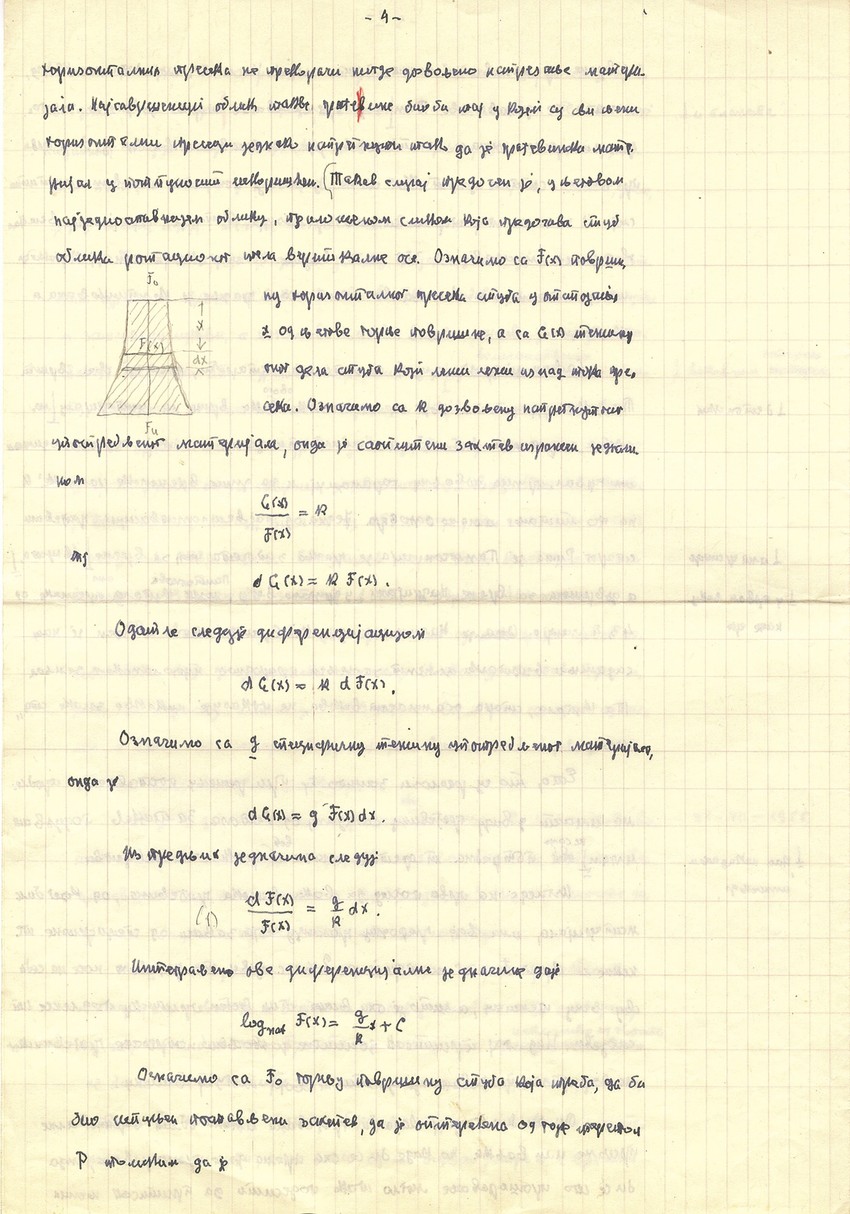 - 4 -
хоризонталних пресека не прекорачи нигде дозвољено напрезање матери-
јала. Најсавршенији облик такве грађевине био би онај у којем су сви њени
хоризонтални пресеци једнако напрегнути тако да је грађевински мате-
ријал у потпуности искоришћен. (Такав случај предочен је, у његовом
најједноставнијем облику, приложеном сликом која предочава стуб
облика ротационог тела вертикалне осе. Означимо са F(x) површи-
F₀
ну хоризонталног пресека стуба у отстојању
x
x од његове горње површине, а са G(x) тежину
F(x)
dx
оног дела стуба који лежи изнад тога пре-
сека. Означимо са k дозвољену напрегнутост
Fu
употребљеног материјала, онда је саопштени захтев изражен једначи-
ном
G(x)/F(x) = k
тј
d G(x) = k F(x).
Одатле следује диференцијацијом
d G(x) = k d F(x).
Означимо са g специфичну тежину употребљеног материјала,
онда је
d G(x) = g F(x) dx.
Из предњих једначина следује
(1) d F(x)/F(x) = g/k dx.
Интеграљење ове диференцијалне једначине даје
log nat F(x) = g/k x + C
Означимо са F₀ горњу површину стуба која треба, да би
био испуњен постављени захтев, да је оптерећена од горе теретом
P толиким да је